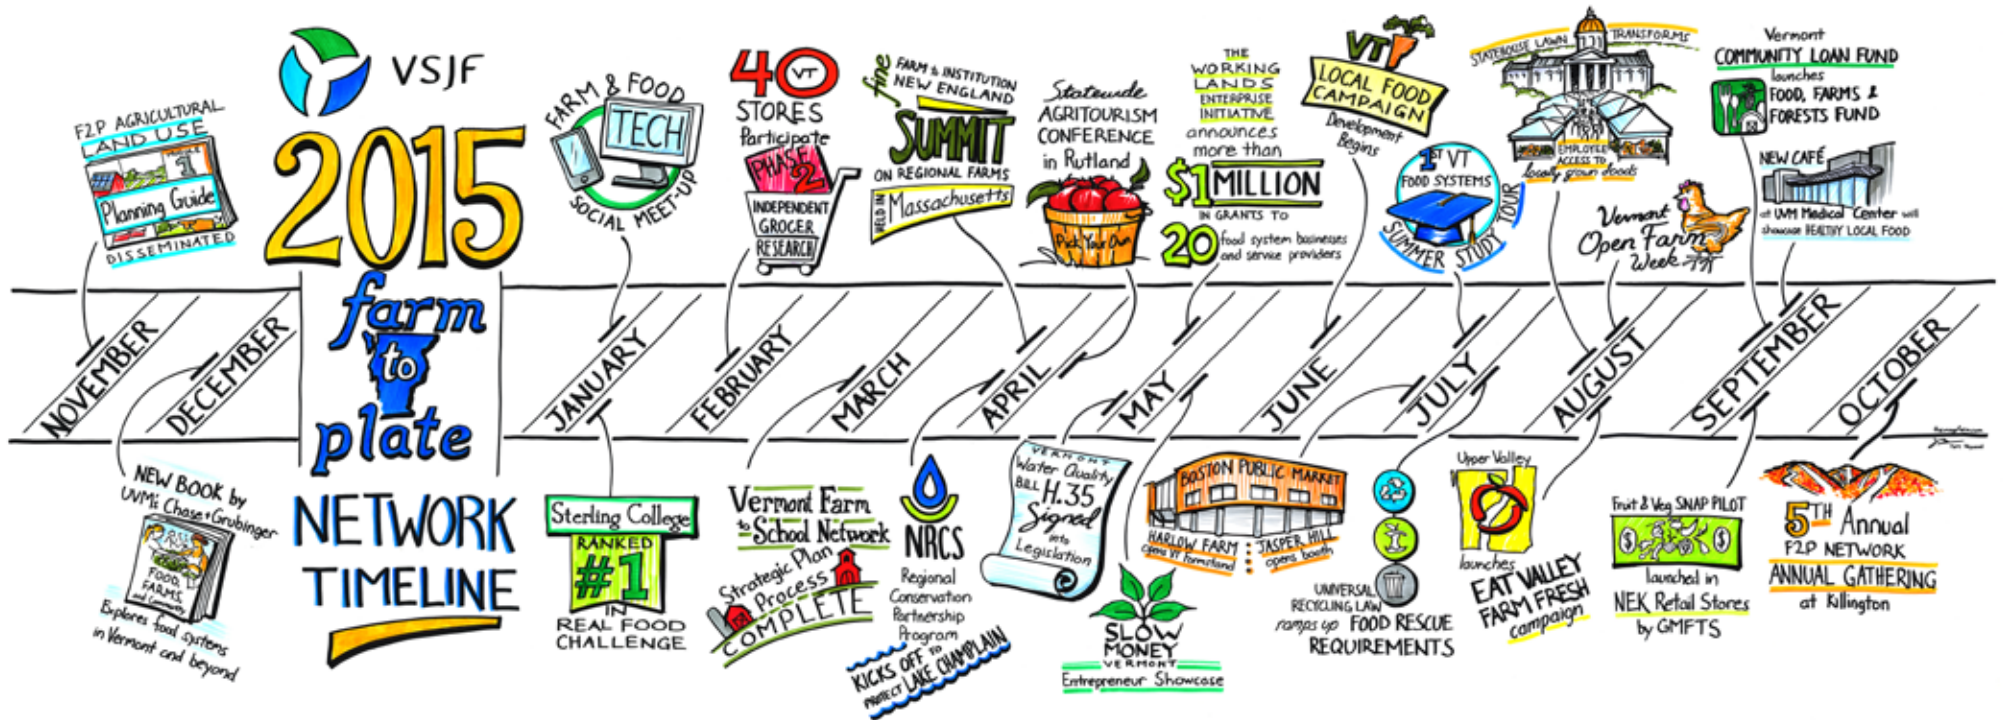 F2P AGRICULTURAL
LAND USE
1
Planning Guide
DISSEMINATED
VSJF
2015
farm
to
plate
NETWORK
TIMELINE
FARM & FOOD
TECH
SOCIAL MEET-UP
40
VT
STORES
Participate
PHASE
2
INDEPENDENT
GROCER
RESEARCH
fine
FARM to INSTITUTION
NEW ENGLAND
SUMMIT
ON REGIONAL FARMS
HELD IN
Massachusetts
Statewide
AGRITOURISM
CONFERENCE
in Rutland
Pick Your Own
THE
WORKING
LANDS
ENTERPRISE
INITIATIVE
announces
more than
$1 MILLION
IN GRANTS TO
20 food system businesses
and service providers
VT
LOCAL FOOD
CAMPAIGN
Development
Begins
1ST VT
FOOD SYSTEMS
SUMMER STUDY TOUR
STATEHOUSE LAWN TRANSFORMS
EMPLOYEE
ACCESS TO
locally grown foods
Vermont
Open Farm
Week
Vermont
COMMUNITY LOAN FUND
launches
FOOD, FARMS &
FORESTS FUND
NEW CAFÉ
at UVM Medical Center will
showcase HEALTHY LOCAL FOOD
NOVEMBER
DECEMBER
JANUARY
FEBRUARY
MARCH
APRIL
MAY
JUNE
JULY
AUGUST
SEPTEMBER
OCTOBER
NEW BOOK by
UVM's Chase + Grubinger
FOOD,
FARMS,
and Community
Explores food systems
in Vermont and beyond
Sterling College
RANKED
#1
IN
REAL FOOD
CHALLENGE
Vermont Farm
to School Network
Strategic Plan
Process
COMPLETE
NRCS
Regional
Conservation
Partnership
Program
KICKS OFF TO
PROTECT LAKE CHAMPLAIN
VERMONT
Water Quality
BILL H.35
Signed
into
Legislation
SLOW
MONEY
VERMONT
Entrepreneur Showcase
BOSTON PUBLIC MARKET
HARLOW FARM
opens VT Farmstand
JASPER HILL
opens booth
UNIVERSAL
RECYCLING LAW
ramps up FOOD RESCUE
REQUIREMENTS
Upper Valley
launches
EAT VALLEY
FARM FRESH
campaign
Fruit & Veg SNAP PILOT
$ $
launched in
NEK Retail Stores
by GMFTS
5TH Annual
F2P NETWORK
ANNUAL GATHERING
at Killington